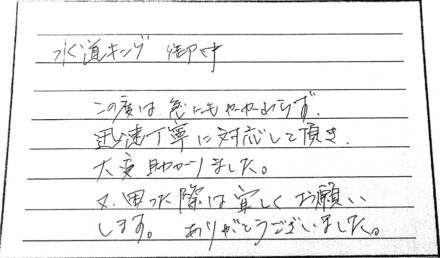 水道キング 御中
この度は急にもかかわらず、
迅速丁寧に対応して頂き、
大変助かりました。
又、困った際は宜しくお願い
します。ありがとうございました。